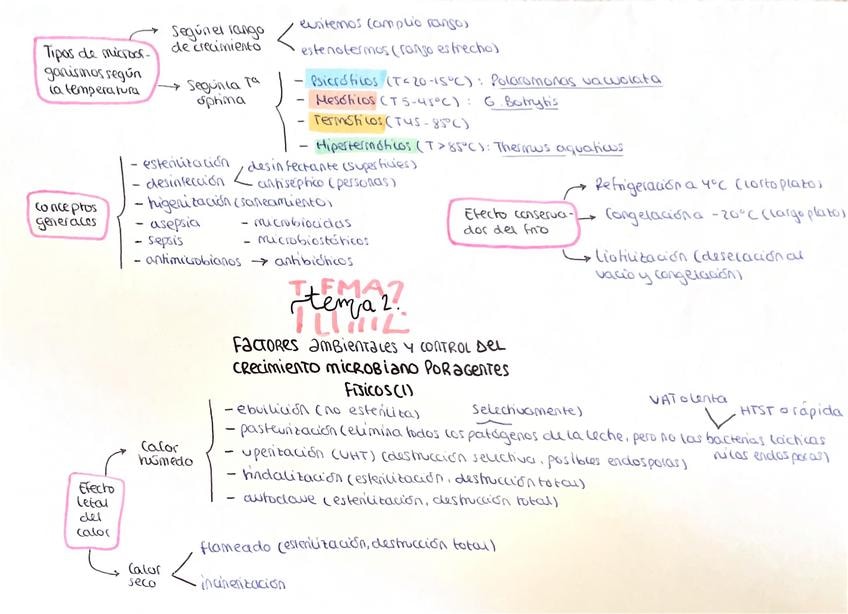 Tipos de microor-
ganismos según
la temperatura
Según el rango
de crecimiento
euritemos (amplio rango)
estenotermos (rango estrecho)
Según la Tª
óptima
- Psicrófilos (T<20-15ºC): Polaromonas vacuolata
- Mesófilos (T 5-45ºC): G. Botrytis
- Termófilos (T 45-85ºC)
- Hipertermófilos (T>85ºC): Thermus aquaticus
conceptos
generales
- esterilización
- desinfección
desinfectante (superficies)
antiséptico (personas)
- higenización (saneamiento)
- asepsia - microbiocidas
- sepsis - microbiostáticos
- antimicrobianos → antibióticos
Efecto conserva-
dor del frío
Refrigeración a 4ºC (corto plazo)
Congelación a -20ºC (largo plazo)
Liofilización (desecación al
vacío y congelación)
TEMA 2
tema 2.
FACTORES AMBIENTALES Y CONTROL DEL
CRECIMIENTO MICROBIANO POR AGENTES
FÍSICOS (I)
Efecto
letal
del
calor
Calor
húmedo
- ebullición (no esteriliza) selectivamente)
VAT o lenta
HTST o rápida
- pasteurización (elimina todos los patógenos de la leche, pero no las bacterias lácticas
ni las endosporas)
- uperización (UHT) (destrucción selectiva, posibles endosporas)
- tindalización (esterilización, destrucción total)
- autoclave (esterilización, destrucción total)
Calor
seco
flameado (esterilización, destrucción total)
incinerización